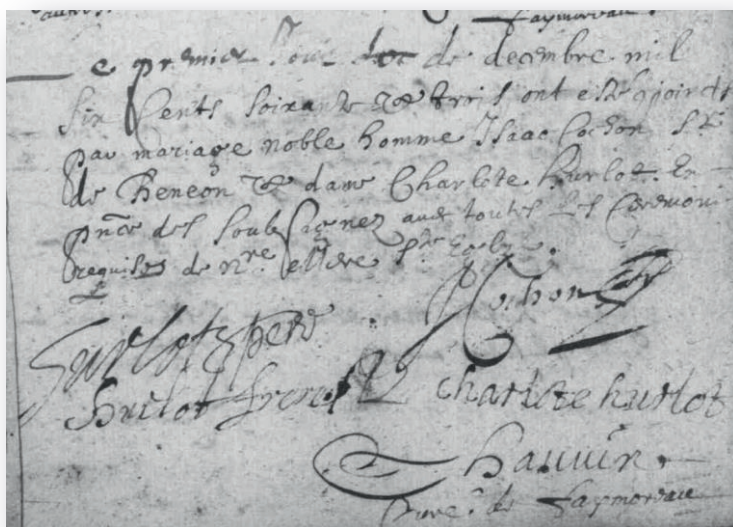 Faymoreau
e premier Jour de decembre mil
six Cents soixante & trois ont esté conjoincts
par mariage noble homme Isaac Cochon Sr
de Heneon & dame Charlote hurlot En
pnce des soubsignez avec toutes Les Ceremoni
requises de nre mere Ste Eglize
ICochon
hurlot pere
hurlot frere
charlote hurlot
Chauvin
Cure de Faymoreau